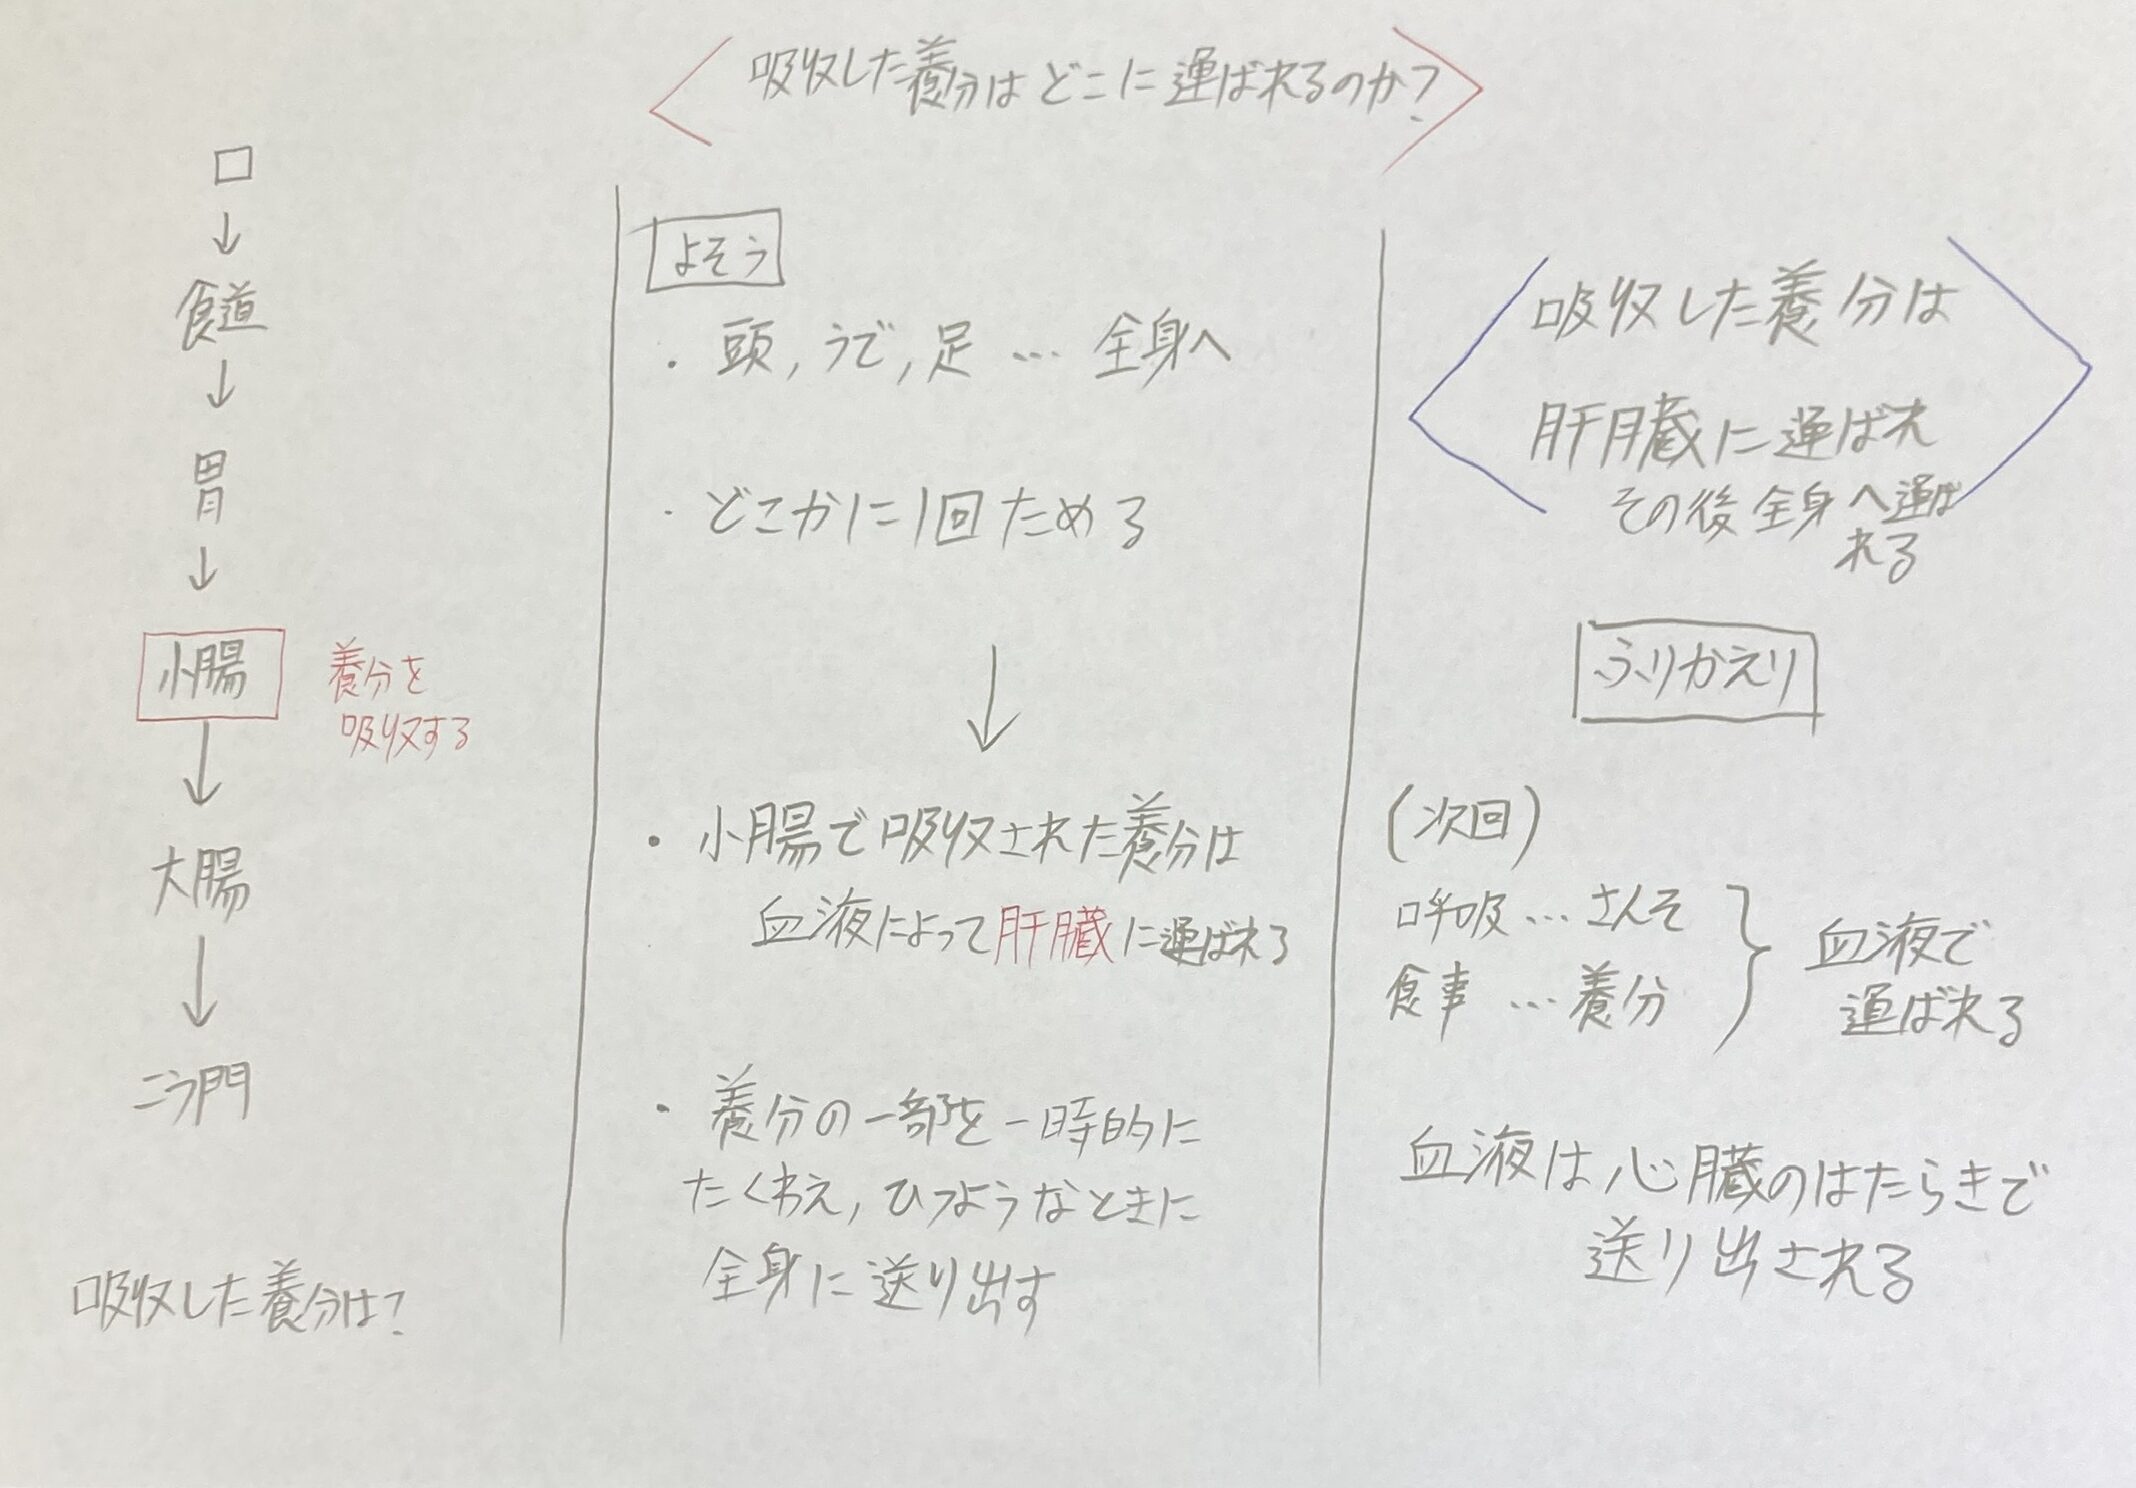 吸収した養分はどこに運ばれるのか?
口
↓
食道
↓
胃
↓
小腸
養分を
吸収する
↓
大腸
↓
こう門
吸収した養分は?
よそう
・頭,うで,足…全身へ
・どこかに1回ためる
↓
・小腸で吸収された養分は
血液によって肝臓に運ばれる
・養分の一部を一時的に
たくわえ,ひつようなときに
全身に送り出す
吸収した養分は
肝臓に運ばれ
その後全身へ運ば
れる
ふりかえり
(次回)
呼吸…さんそ
食事…養分
血液で
運ばれる
血液は心臓のはたらきで
送り出される